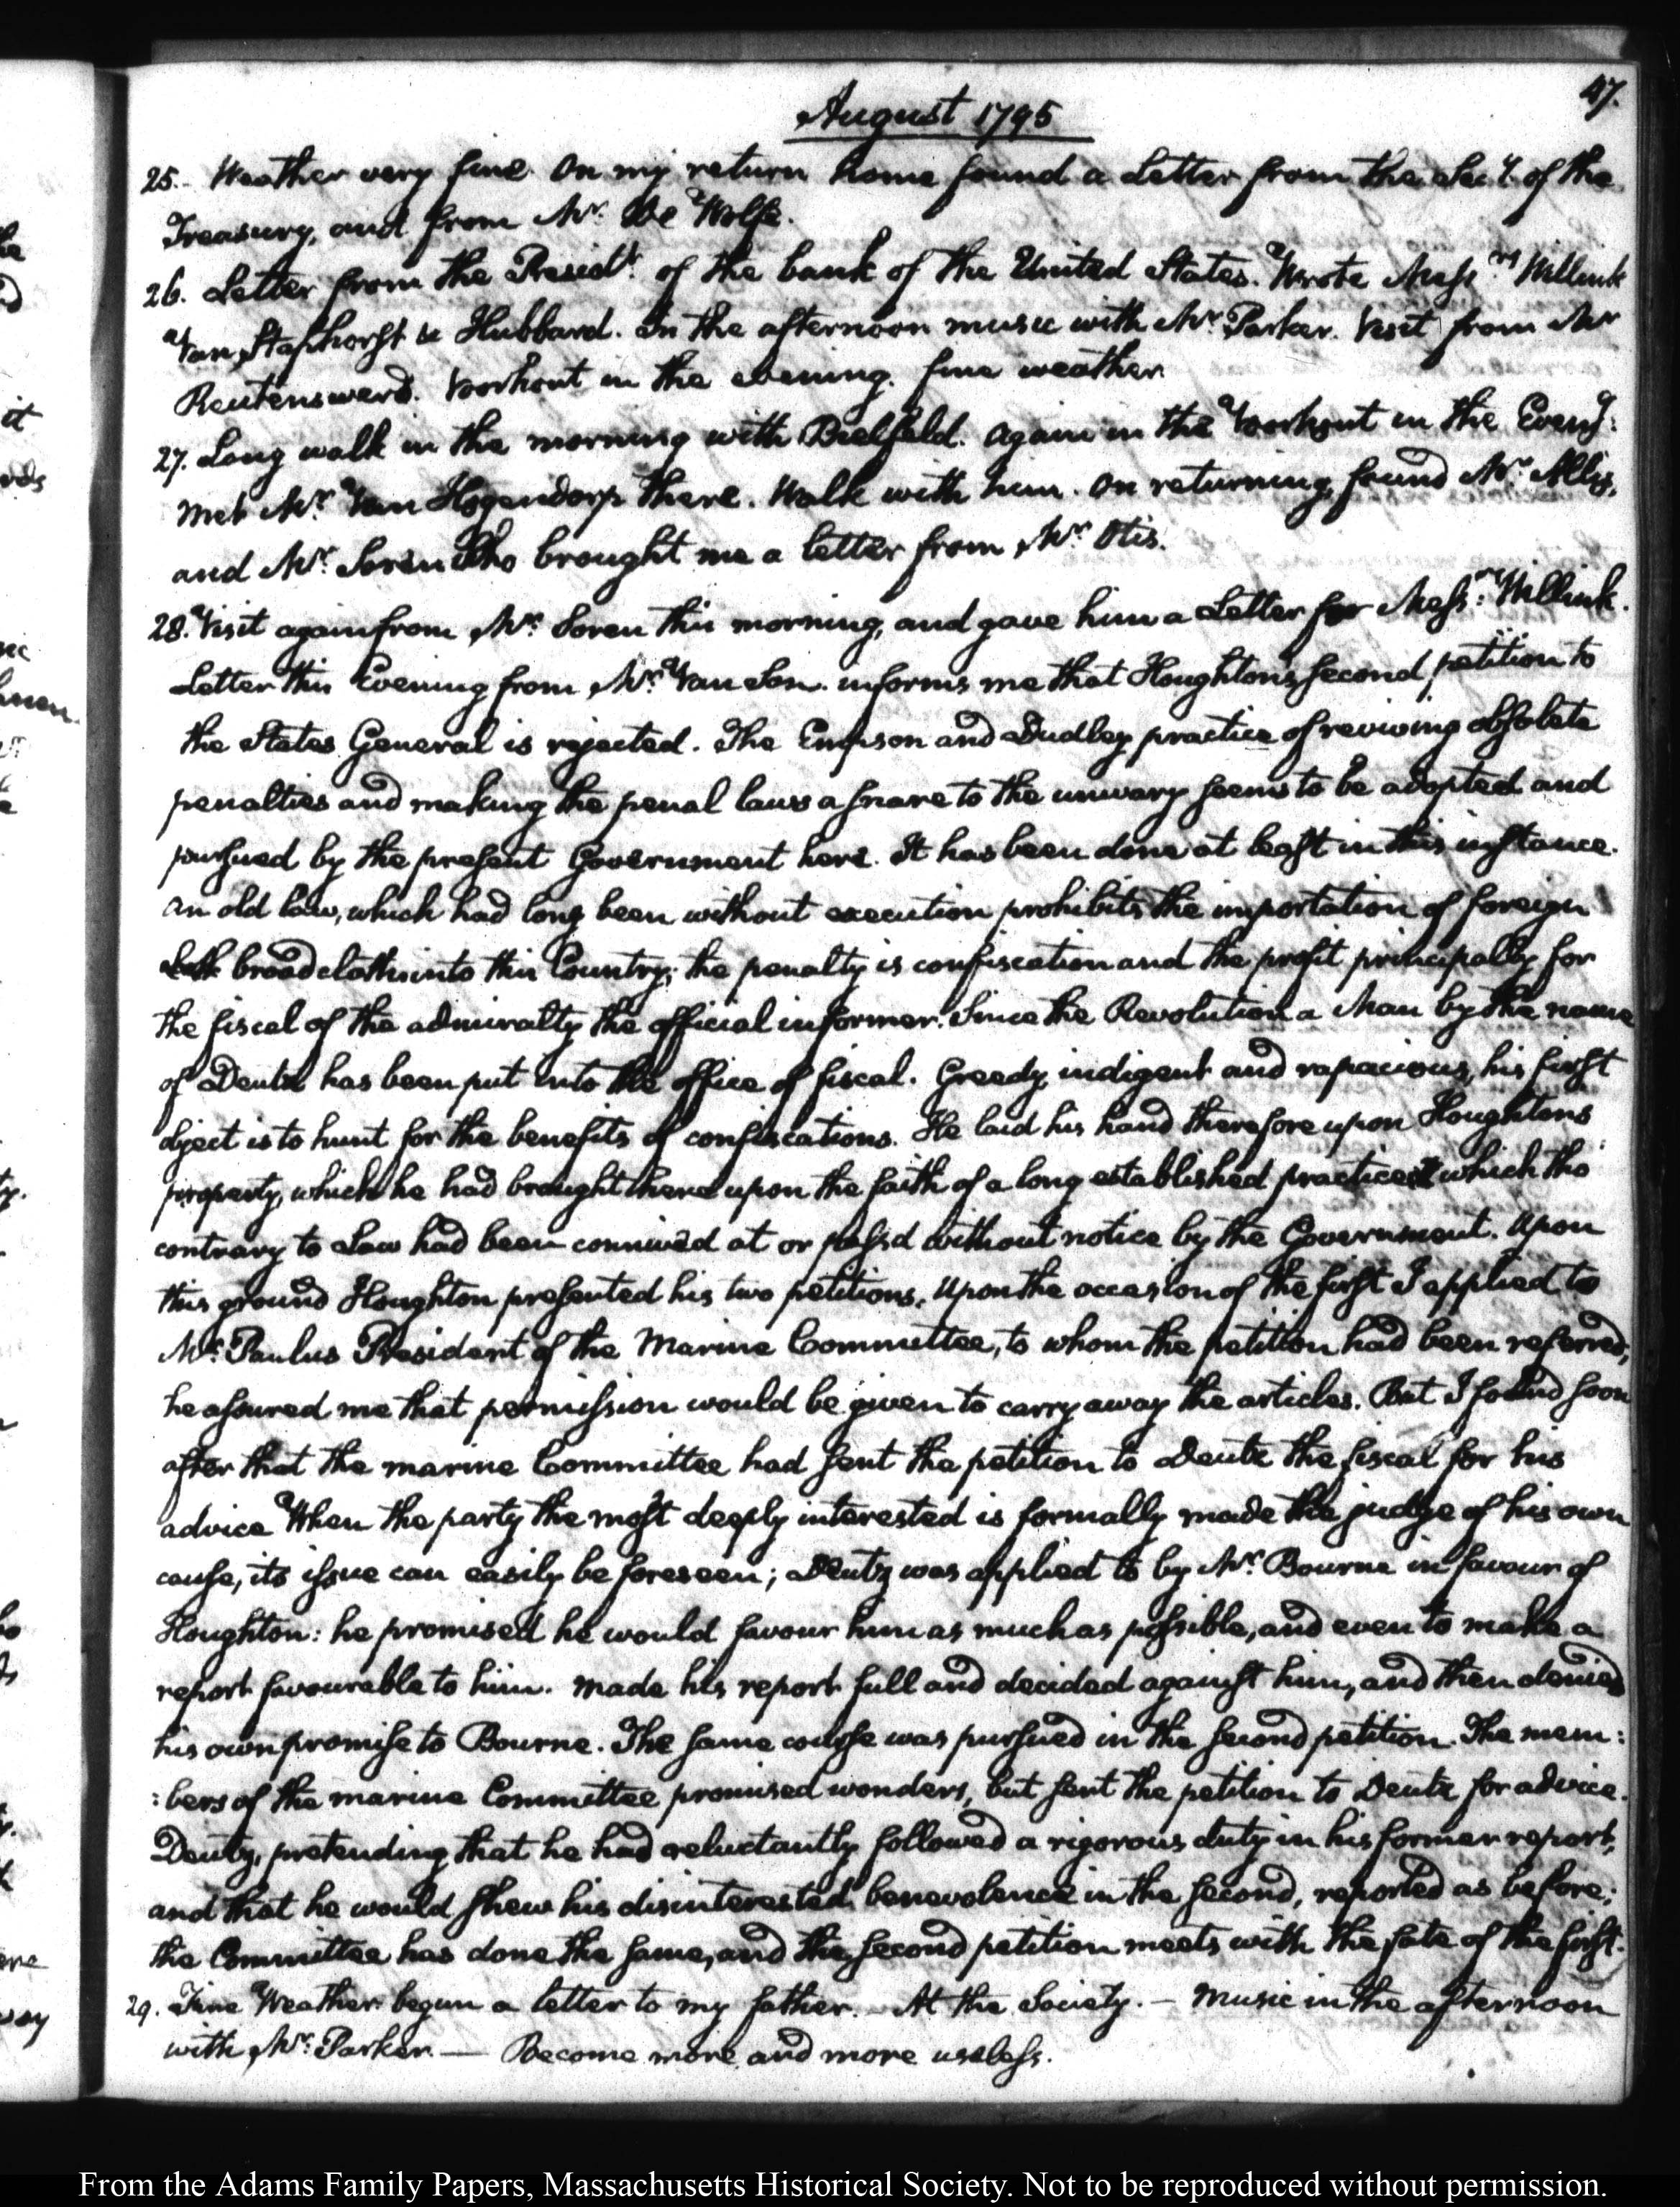 47.
August 1795
25. Weather very fine. On my return home found a Letter from the Secy. of the
Treasury, and from Mr. De Wolfe.
26. Letter from the Presidt. of the bank of the United States. Wrote Messrs. Willink
Van Staphorst & Hubbard. In the afternoon music with Mr. Parker. Visit from Mr
Reutersward. Voorhout in the evening. fine weather.
27. Long walk in the morning with Bielfeld. Again in the Voorhout in the Eveng:
Met Mr. Van Hogendorp there. Walk with him. On returning, found Mr. Allis,
and Mr. Soren who brought me a letter from Mr. Otis.
28. Visit again from Mr. Soren this morning, and gave him a Letter for Messrs: Willink.
Letter this Evening from Mr. Van Son. informs me that Houghton's second petition to
the States General is rejected. The Empson and Dudley practice of reviving obsolete
penalties and making the penal laws a snare to the unwary seems to be adopted and
pursued by the present Government here. It has been done at least in this instance.
An old law, which had long been without execution prohibits the importation of foreign
broad cloths into this Country; the penalty is confiscation and the profit principally for
the fiscal of the admiralty the official informer. Since the Revolution a Man by the name
of Deutz has been put into the office of fiscal. Greedy, indigent and rapacious, his first
object is to hunt for the benefits of confiscations. He laid his hand therefore upon Houghtons
property, which he had brought here upon the faith of a long established practice which tho'
contrary to Law had been connived at or pass'd without notice by the Government. Upon
this ground Houghton presented his two petitions. Upon the occasion of the first I applied to
Mr. Paulus President of the Marine Committee, to whom the petition had been referred,
he assured me that permission would be given to carry away the articles. But I found soon
after that the marine Committee had sent the petition to Deutz the fiscal for his
advice When the party the most deeply interested is formally made the judge of his own
cause, its issue can easily be foreseen; Deutz was applied to by Mr. Bourne in favour of
Houghton: he promised he would favour him as much as possible, and even to make a
report favourable to him. Made his report full and decided against him, and then denied
his own promise to Bourne. The same course was pursued in the second petition. The mem:
:bers of the marine Committee promised wonders, but sent the petition to Deutz for advice.
Deutz, pretending that he had reluctantly followed a rigorous duty in his former report,
and that he would shew his disinterested benevolence in the second, reported as before;
the Committee has done the same, and the second petition meets with the fate of the first.
29. Fine Weather. begun a letter to my father. At the Society. — Music in the afternoon
with Mr. Parker. — Become more and more useless.
From the Adams Family Papers, Massachusetts Historical Society. Not to be reproduced without permission.